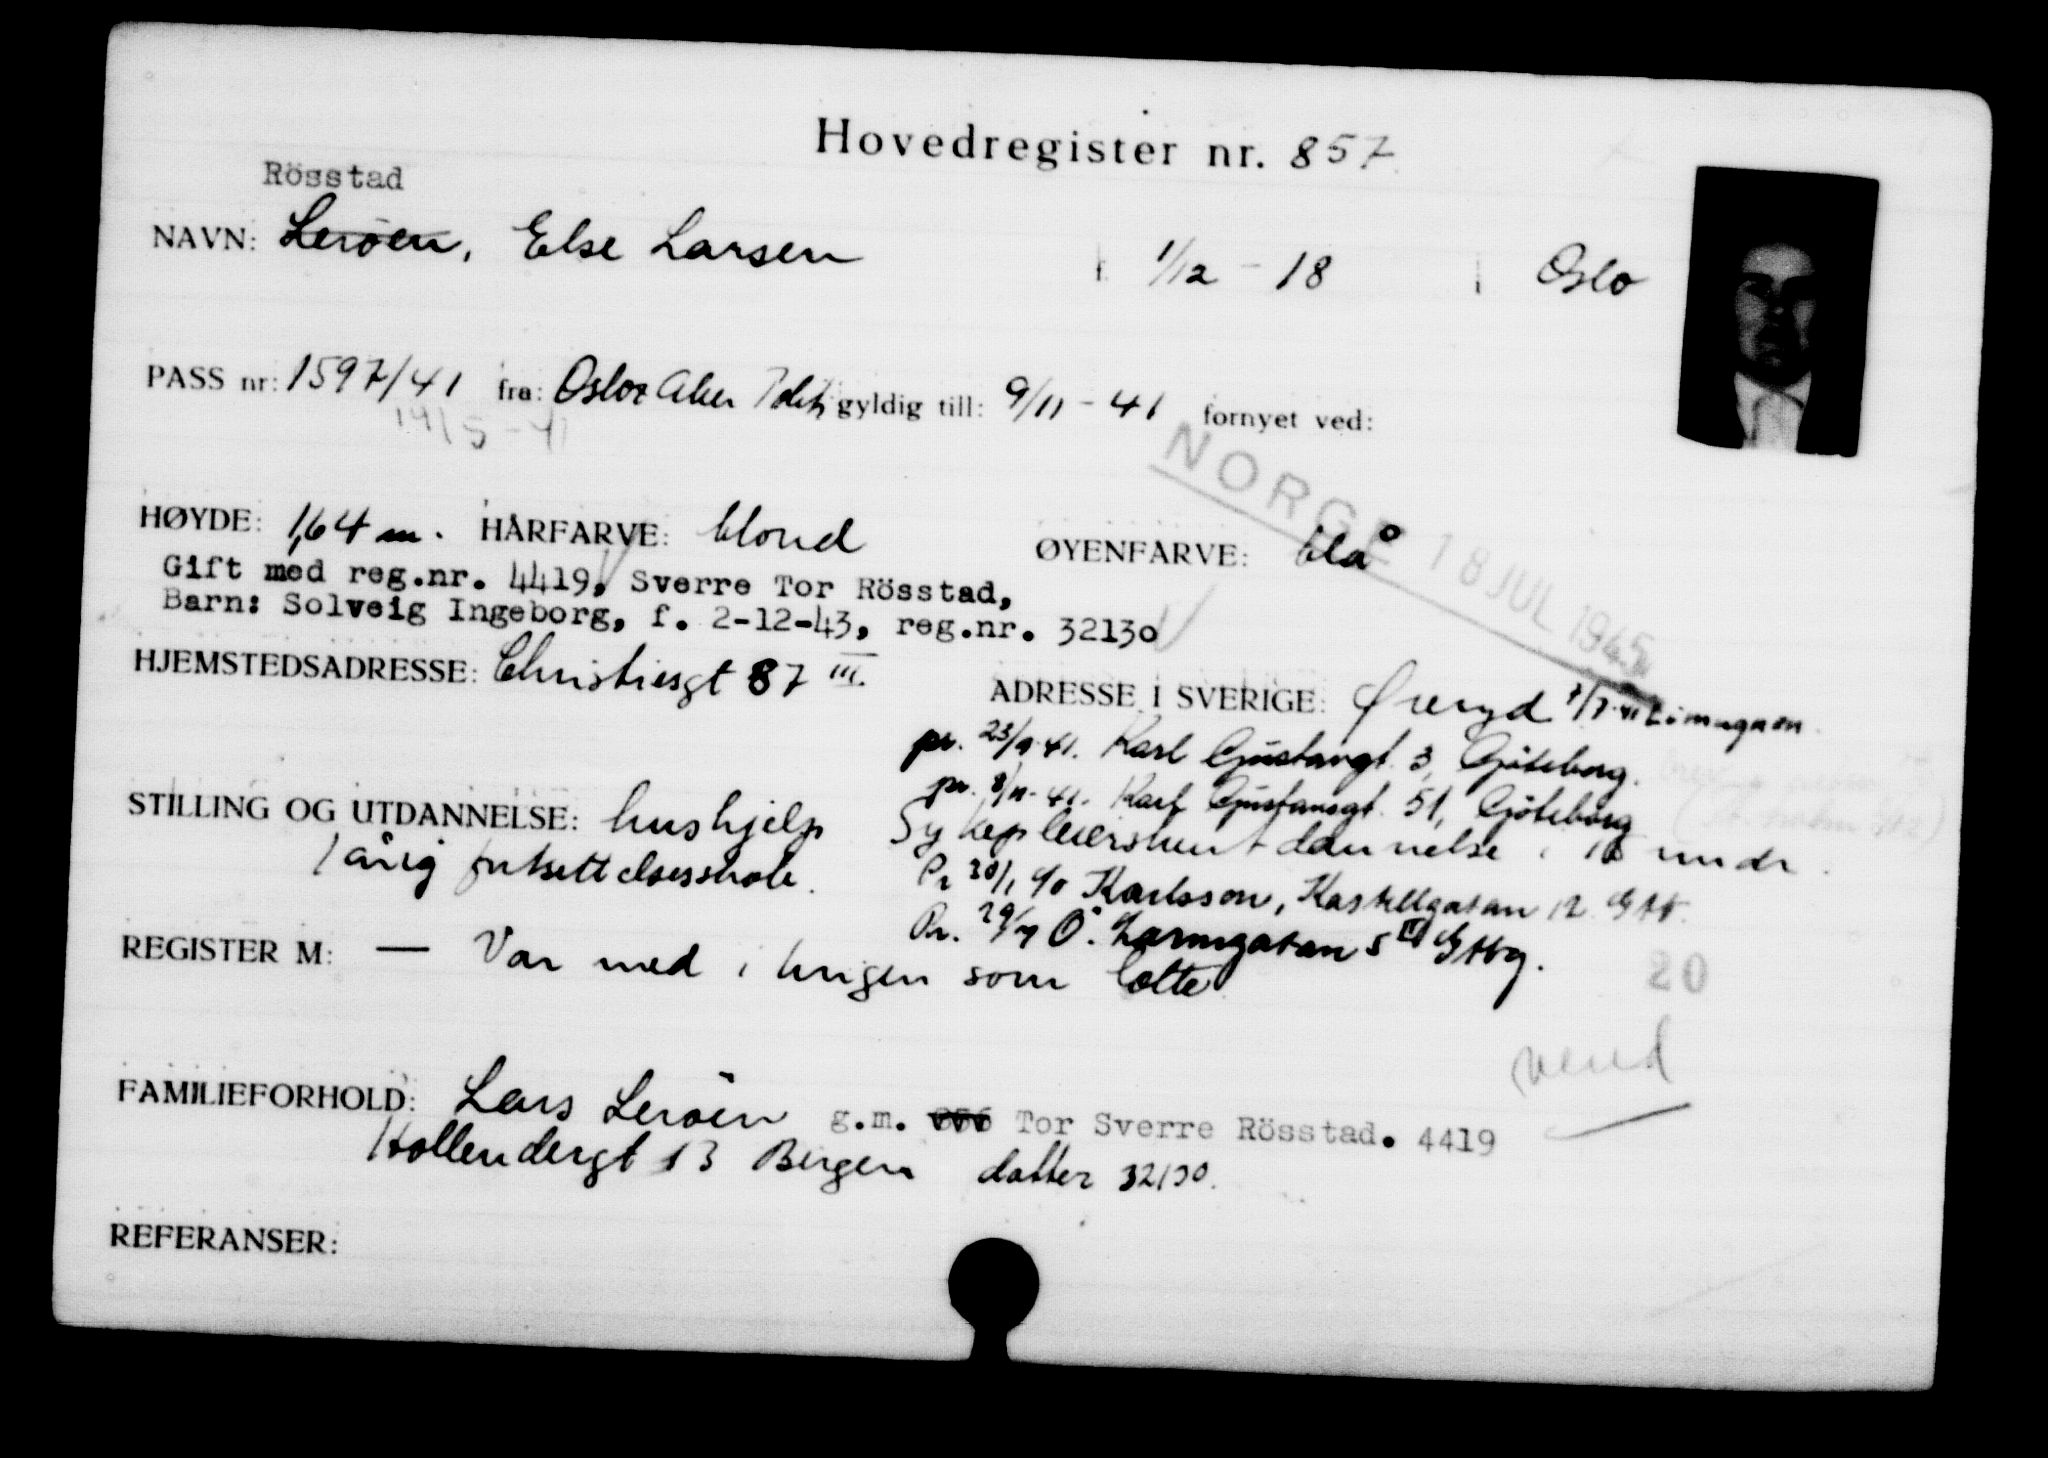 Hovedregister nr. 857
Rösstad
NAVN: Leröen, Else Larsen f. 1/12 - 18 i Oslo
PASS nr: 1597/41 fra: Oslo Aker Politi gyldig till: 9/11 - 41 fornyet ved:
19/5 - 41
NORGE 18 JUL 1945
HØYDE: 1,64 m. HÅRFARVE: blond ØYENFARVE: blå
Gift med reg.nr. 4419, Sverre Tor Rösstad,
Barn: Solveig Ingeborg, f. 2-12-43, reg.nr. 32130
HJEMSTEDSADRESSE: Christiesgt 87 III. ADRESSE I SVERIGE: Øreryd
pr. 23/9-41. Karl Gustavsgt. 3, Göteborg.
pr. 8/11-41. Karl Gustavsgt. 51, Göteborg
STILLING OG UTDANNELSE: hushjelp Sykepleierskeutdannelse i
1 årig fortsettelsesskole.
Pr 20/1 c/o Karlsson, Kastellgatan 12 Gtb.
Pr. 29/7 Ö. Larmgatan 5 II Gtbg.
REGISTER M: — Var med i krigen som lotte
20
vend
FAMILIEFORHOLD: Lars Leröen g.m. 856 Tor Sverre Rösstad. 4419
Hollendergt 13 Bergen datter 32130.
REFERANSER: